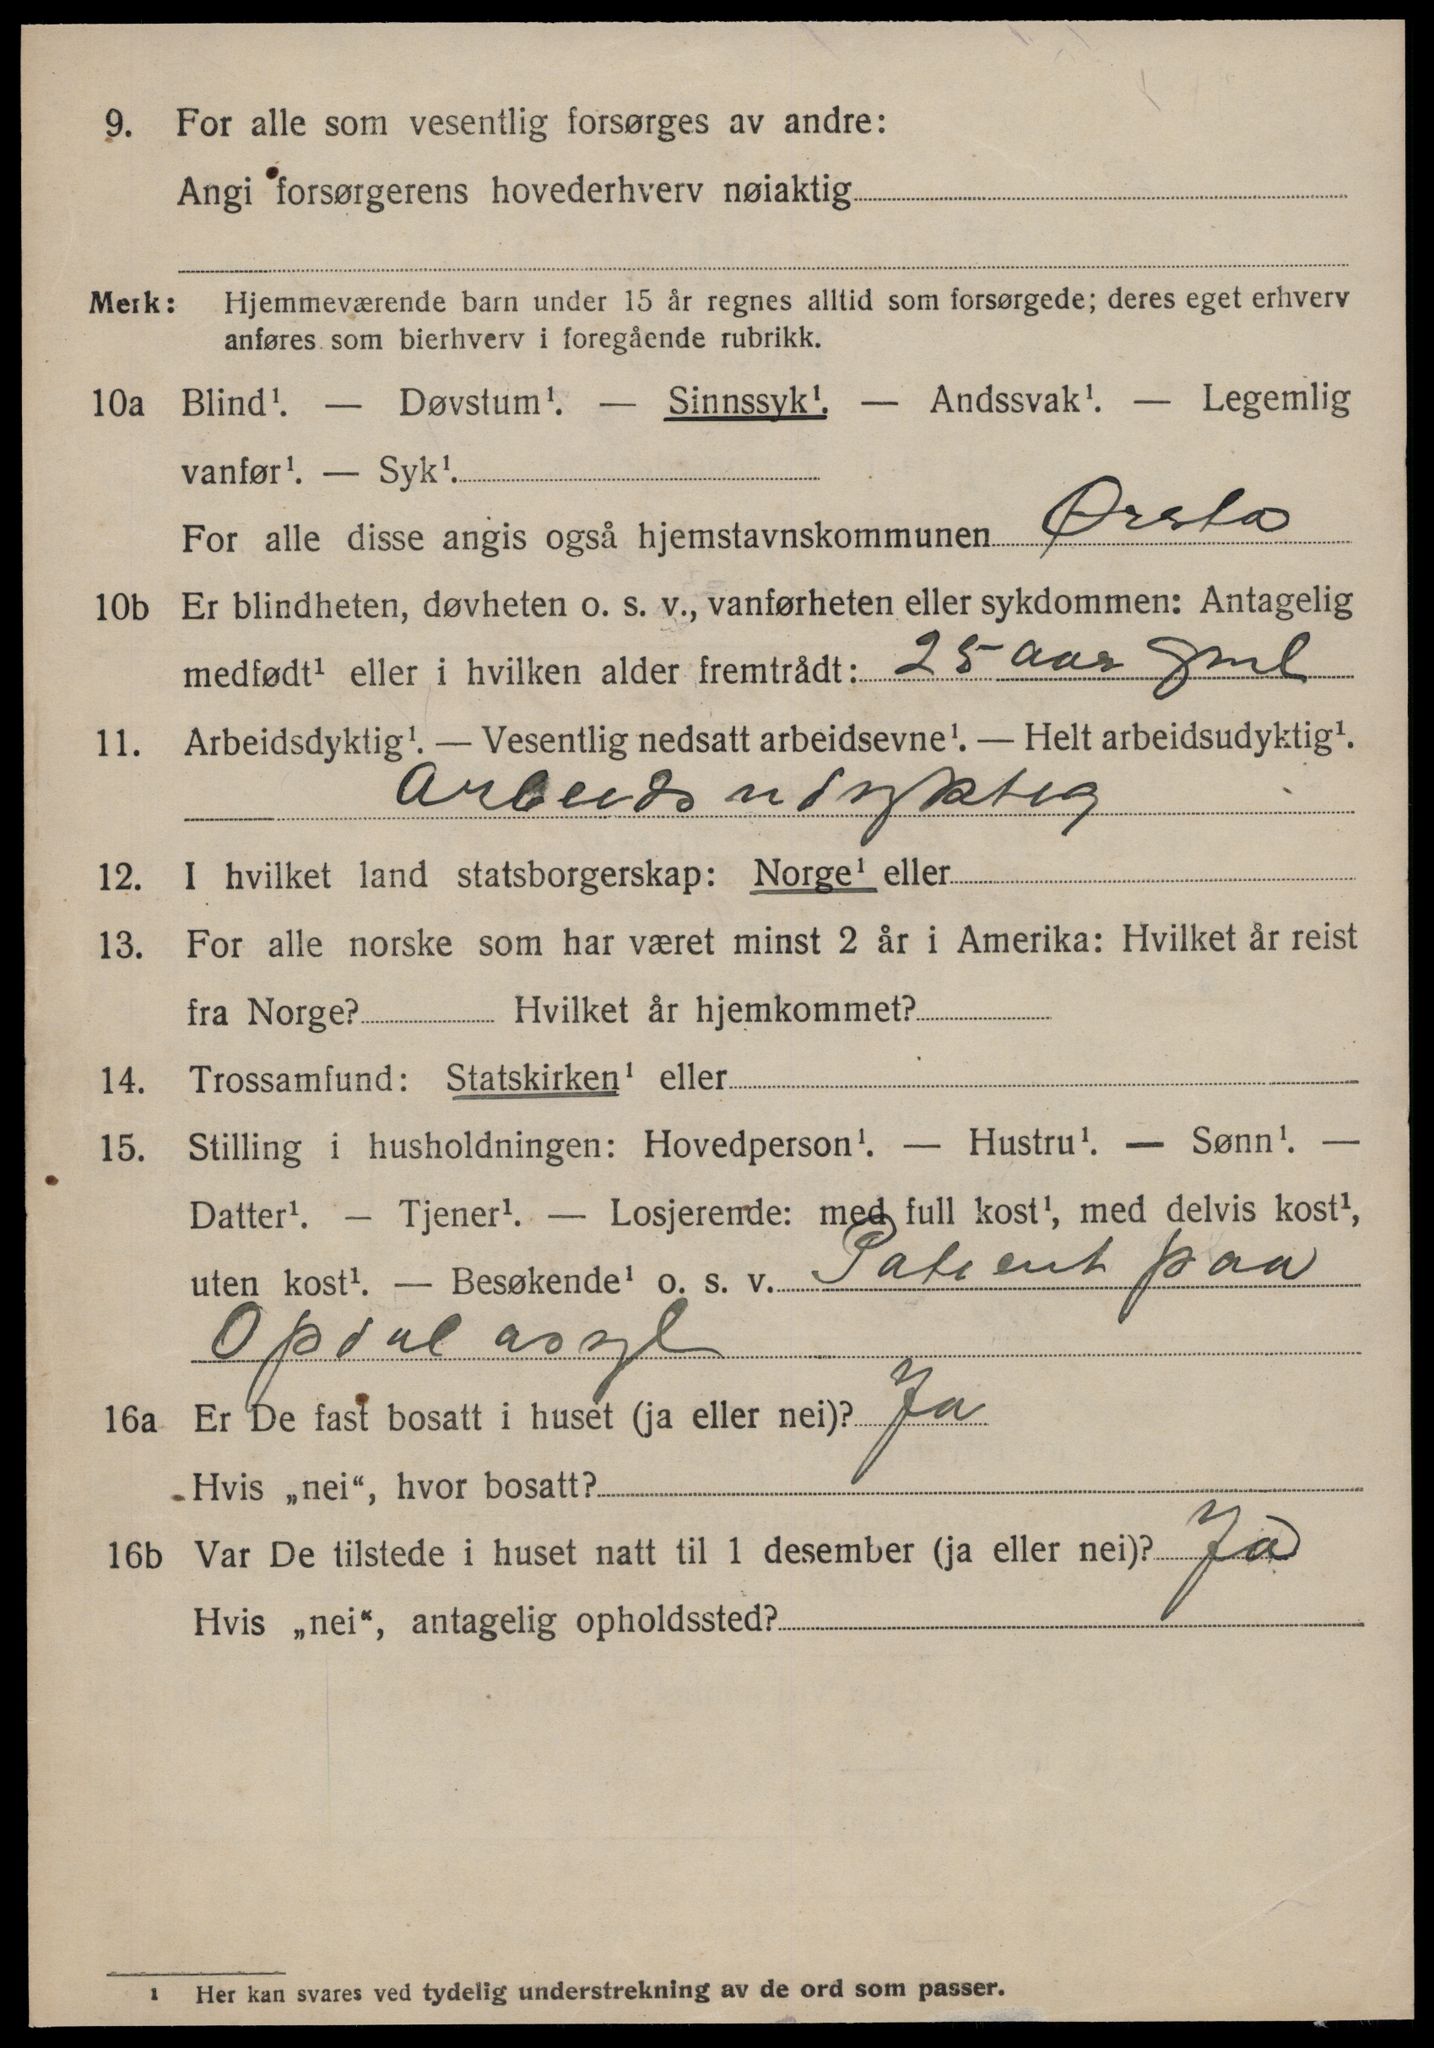 9. For alle som vesentlig forsørges av andre:
Angi forsørgerens hovederhverv nøiaktig
Merk: Hjemmeværende barn under 15 år regnes alltid som forsørgede; deres eget erhverv
anføres som bierhverv i foregående rubrikk.
10a Blind¹. — Døvstum¹. — Sinnssyk¹. — Andssvak¹. — Legemlig
vanfør¹. — Syk¹.
For alle disse angis også hjemstavnskommunen Ørsta
10b Er blindheten, døvheten o. s. v., vanførheten eller sykdommen: Antagelig
medfødt¹ eller i hvilken alder fremtrådt: 25 aar gml
11. Arbeidsdyktig¹. — Vesentlig nedsatt arbeidsevne¹. — Helt arbeidsudyktig¹.
Arbeidsudyktig
12. I hvilket land statsborgerskap: Norge¹ eller
13. For alle norske som har været minst 2 år i Amerika: Hvilket år reist
fra Norge? Hvilket år hjemkommet?
14. Trossamfund: Statskirken¹ eller
15. Stilling i husholdningen: Hovedperson¹. — Hustru¹. — Sønn¹. —
Datter¹. — Tjener¹. — Losjerende: med full kost¹, med delvis kost¹,
uten kost¹. — Besøkende¹ o. s. v. Patient paa
Opdal asyl
16a Er De fast bosatt i huset (ja eller nei)? Ja
Hvis „nei“, hvor bosatt?
16b Var De tilstede i huset natt til 1 desember (ja eller nei)? Ja
Hvis „nei“, antagelig opholdssted?
¹ Her kan svares ved tydelig understrekning av de ord som passer.